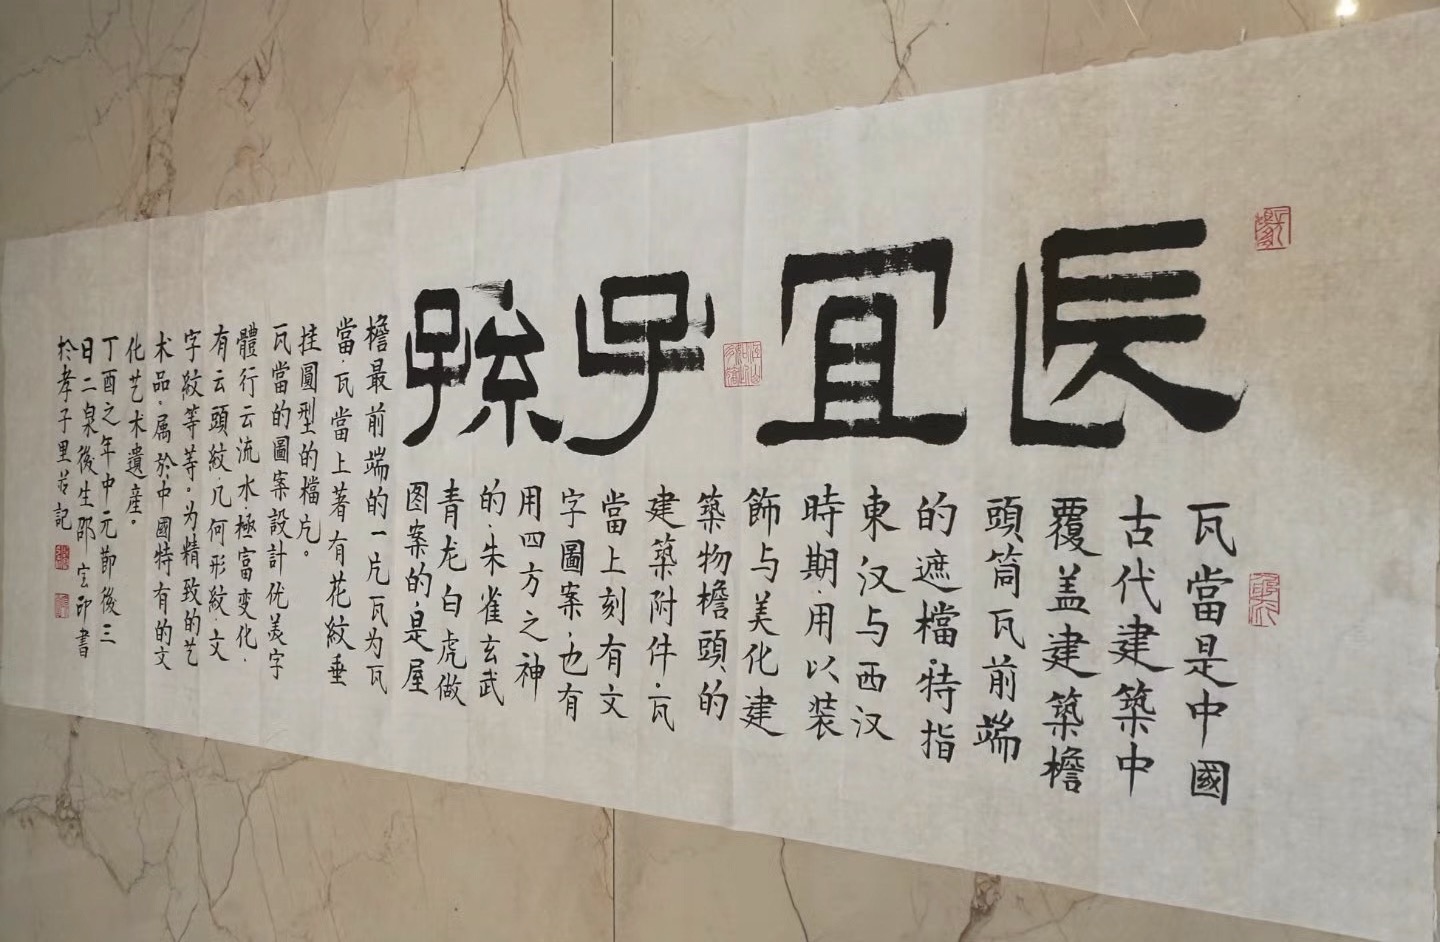 長宜子孫
瓦當是中國
古代建築中
覆盖建築檐
頭筒瓦前端
的遮檔·特指
東汉与西汉
時期·用以装
飾与美化建
築物檐頭的
建築附件·瓦
當上刻有文
字圖案·也有
用四方之神
的·朱雀玄武
青龙白虎做
图案的·是屋
檐最前端的一片瓦为瓦
當·瓦當上著有花紋垂
挂圓型的檔片。
瓦當的圖案設計优美字
體行云流水·極富变化·
有云頭紋·几何形紋·文
字紋等等。为精致的艺
术品·属於中國特有的文
化艺术遺産。
丁酉之年中元節後三
日二泉後生邵宝印書
於孝子里並記